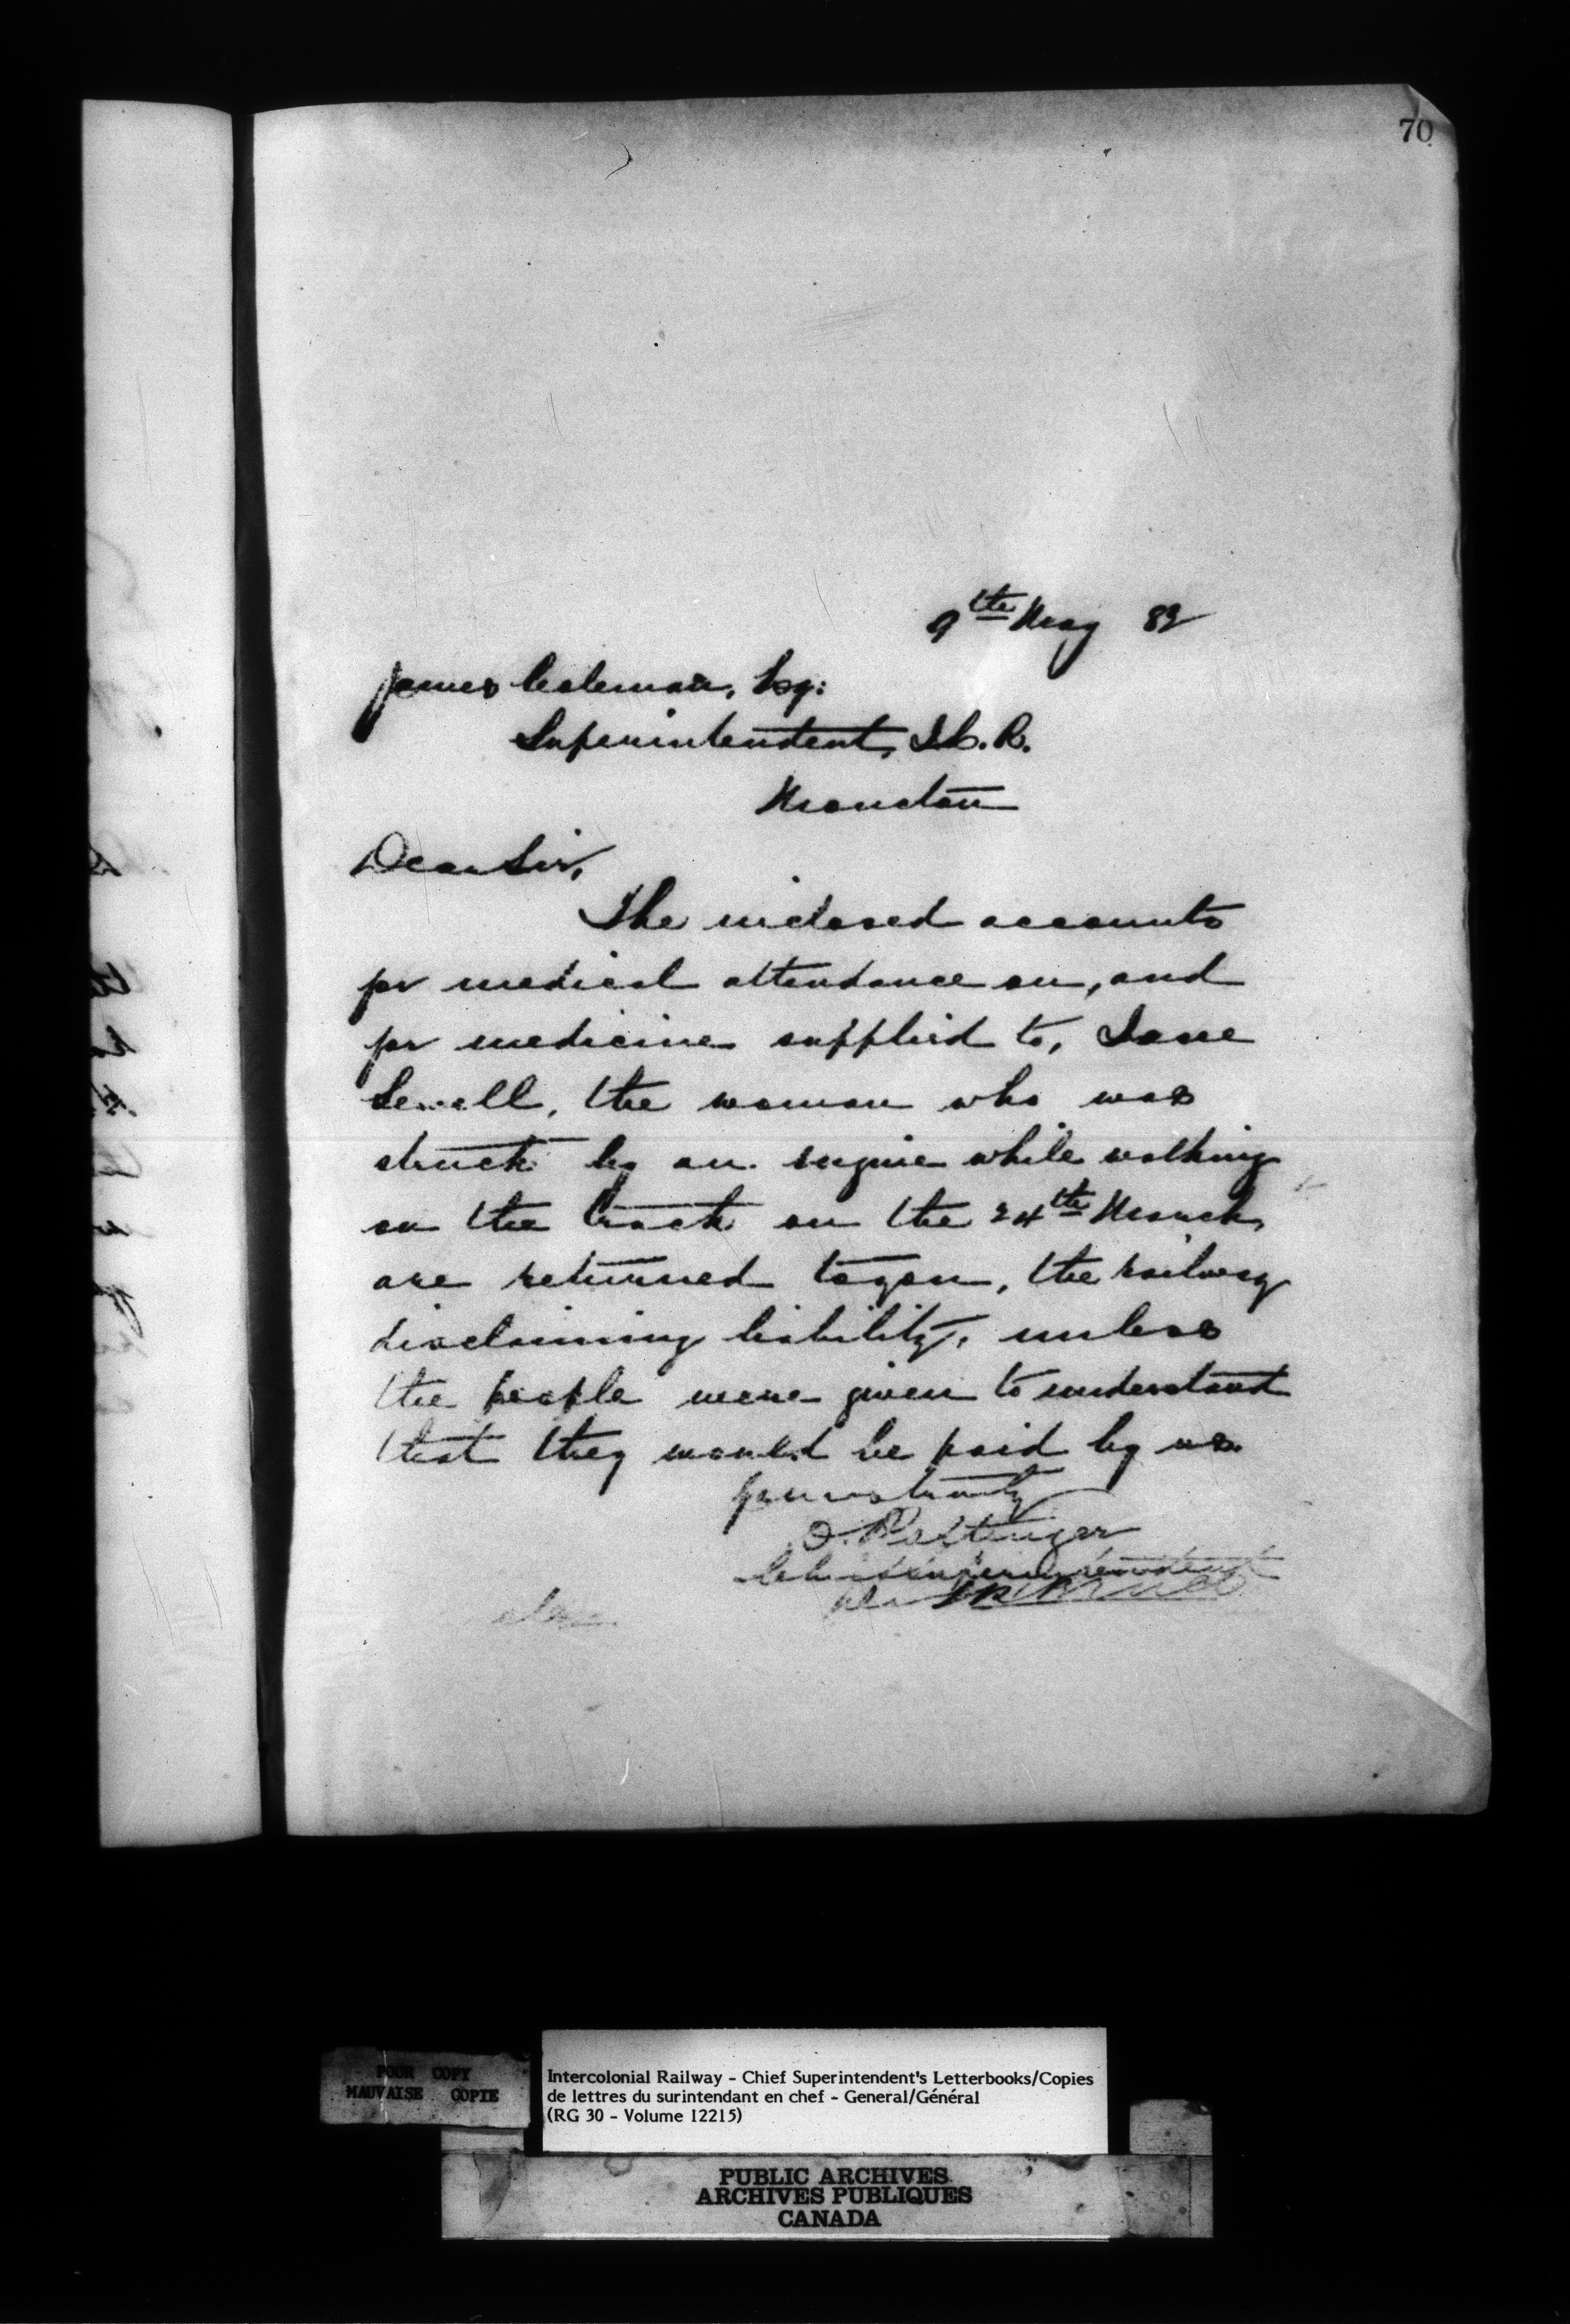 70
9th May 82
James Coleman, Esq:
Superintendent, I.C.R.
Moncton
Dear Sir,
The inclosed accounts
for medical attendance on, and
for medicine supplied to, Jane
Sewell, the woman who was
struck by an engine while walking
on the track on the 24th March,
are returned to you, the railway
disclaiming liability, unless
the people were given to understand
that they would be paid by us.
Yours truly
D. Pottinger
Chief Superintendent
POOR COPY
MAUVAISE COPIE
Intercolonial Railway - Chief Superintendent's Letterbooks/Copies
de lettres du surintendant en chef - General/Général
(RG 30 - Volume 12215)
PUBLIC ARCHIVES
ARCHIVES PUBLIQUES
CANADA